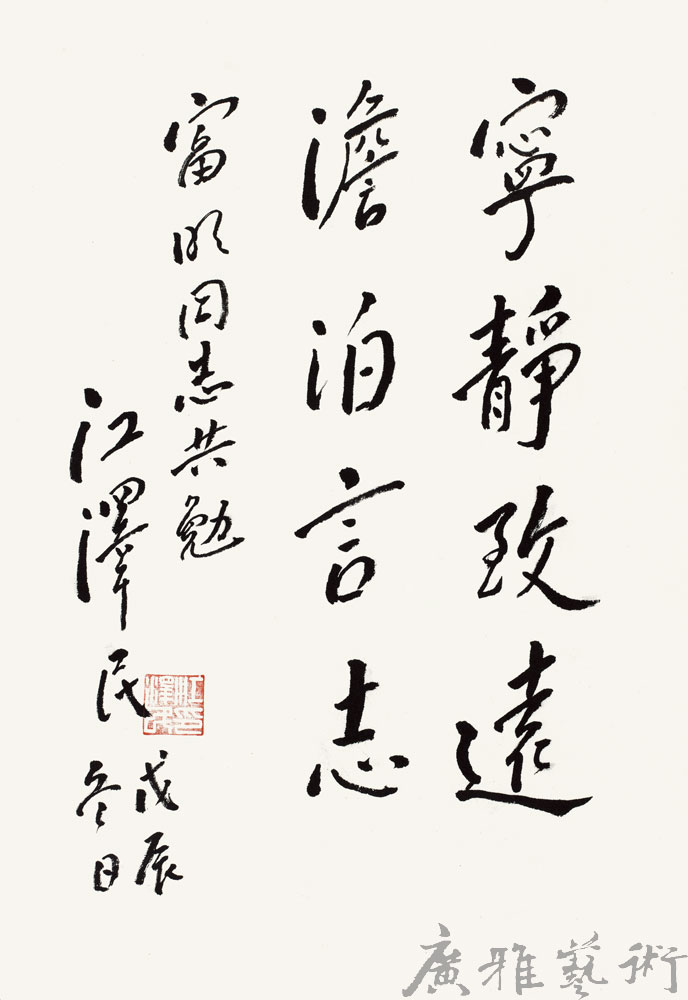 寧靜致遠
澹泊言志
富明同志共勉
江澤民
戊辰
冬日
江澤民印
廣雅藝術